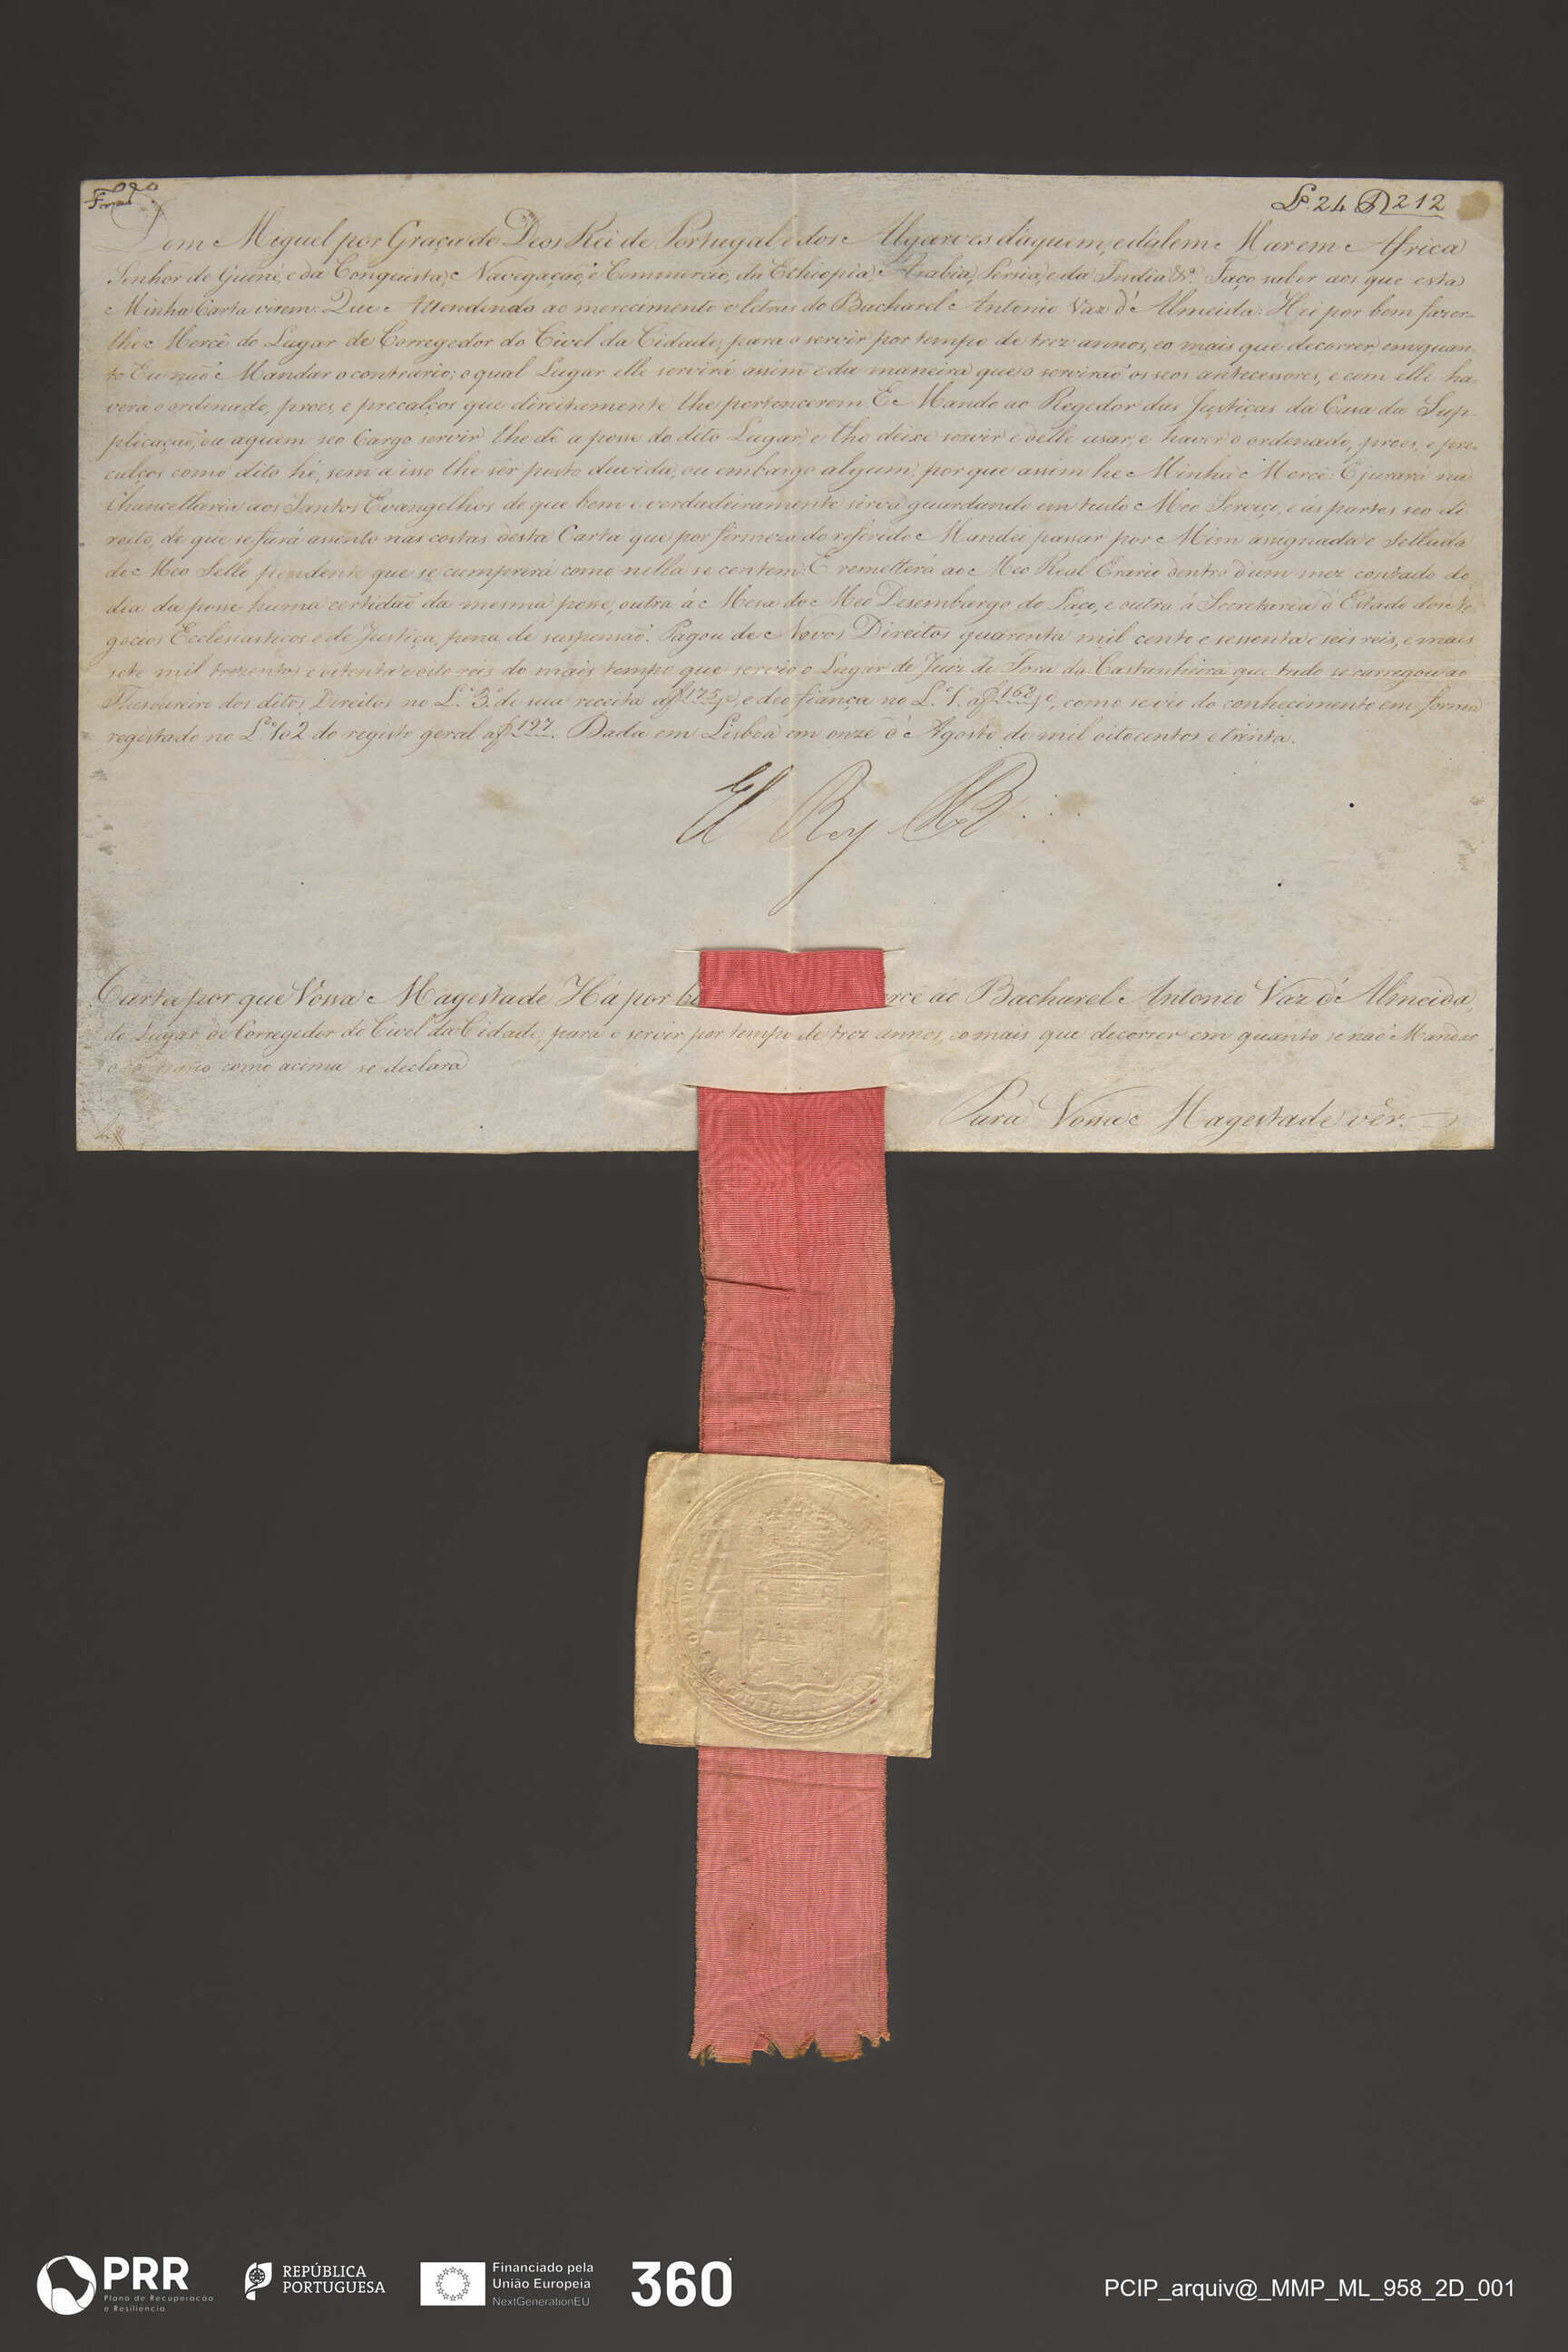 Lº 24 212
Dom Miguel por Graça de Deos Rei de Portugal e dos Algarves d'aquem, e d'alem Mar em Africa
Senhor de Guiné, e da Conquista, Navegação, e Commercio, da Ethiopia, Arabia, Persia, e da India &ª. Faço saber aos que esta
Minha Carta virem: Que Attendendo ao merecimento e letras do Bacharel Antonio Vaz d'Almeida: Hei por bem fazer-
lhe Mercê do Lugar de Corregedor do Civel da Cidade, para o servir por tempo de trez annos, e o mais que decorrer em quan-
to Eu naõ Mandar o contrario; o qual Lugar elle servirá assim e da maneira que o serviraõ os seos antecessores, e com elle ha-
verá o ordenado, proes, e precalços que direitamente lhe pertencerem E Mando ao Regedor das Justiças da Casa da Sup-
plicaçaõ, ou aquem seo Cargo servir lhe dê a posse do dito Lugar, e lho deixe servir e delle usar, e haver o ordenado, proes, e pre-
calços como dito hé, sem a isso lhe sêr posto duvida, ou embargo algum, por que assim he Minha Mercê: E jurará na
Chancellaria aos Santos Evangelhos de que bem e verdadeiramente sirva guardando em tudo Meo Serviço, e ás partes seo di-
reito, de que se fará assento nas costas desta Carta que por firmeza do referido Mandei passar por Mim assignada e Sellada
de Meo Sello pendente que se cumprirá como nella se contem: E remetterá ao Meo Real Erario dentro d'um mez contado do
dia da posse huma certidaõ da mesma posse, outra á Mesa do Meo Desembargo do Paço, e outra á Secretaria d'Estado dos Ne-
gocios Ecclesiasticos e de Justiça, pena de suspensaõ. Pagou de Novos Direitos quarenta mil cento e sessenta e seis reis, e mais
sete mil trezentos e oitenta e oito reis do mais tempo que servio o Lugar de Juiz de Fora da Castanheira que tudo se carregou ao
Thesoureiro dos ditos Direitos no Lº. 3º. de sua receita a f 175, e deo fiança no Lº. 1º. a f 168, como se vio do conhecimento em forma
registado no Lº. 102 do registo geral a f 197. Dada em Lisboa em onze d'Agosto de mil oitocentos e trinta.
El Rey
Carta por que Vossa Magestade Há por rcê ao Bacharel Antonio Vaz d'Almeida,
do Lugar de Corregedor do Civel da Cidade, para o servir por tempo de trez annos, e o mais que decorrer em quanto se naõ Mandar
o contrario como acima se declara
Para Vossa Magestade vêr.
PRR
Plano de Recuperação
e Resiliência
REPÚBLICA
PORTUGUESA
Financiado pela
União Europeia
NextGenerationEU
360
PCIP_arquiv@_MMP_ML_958_2D_001